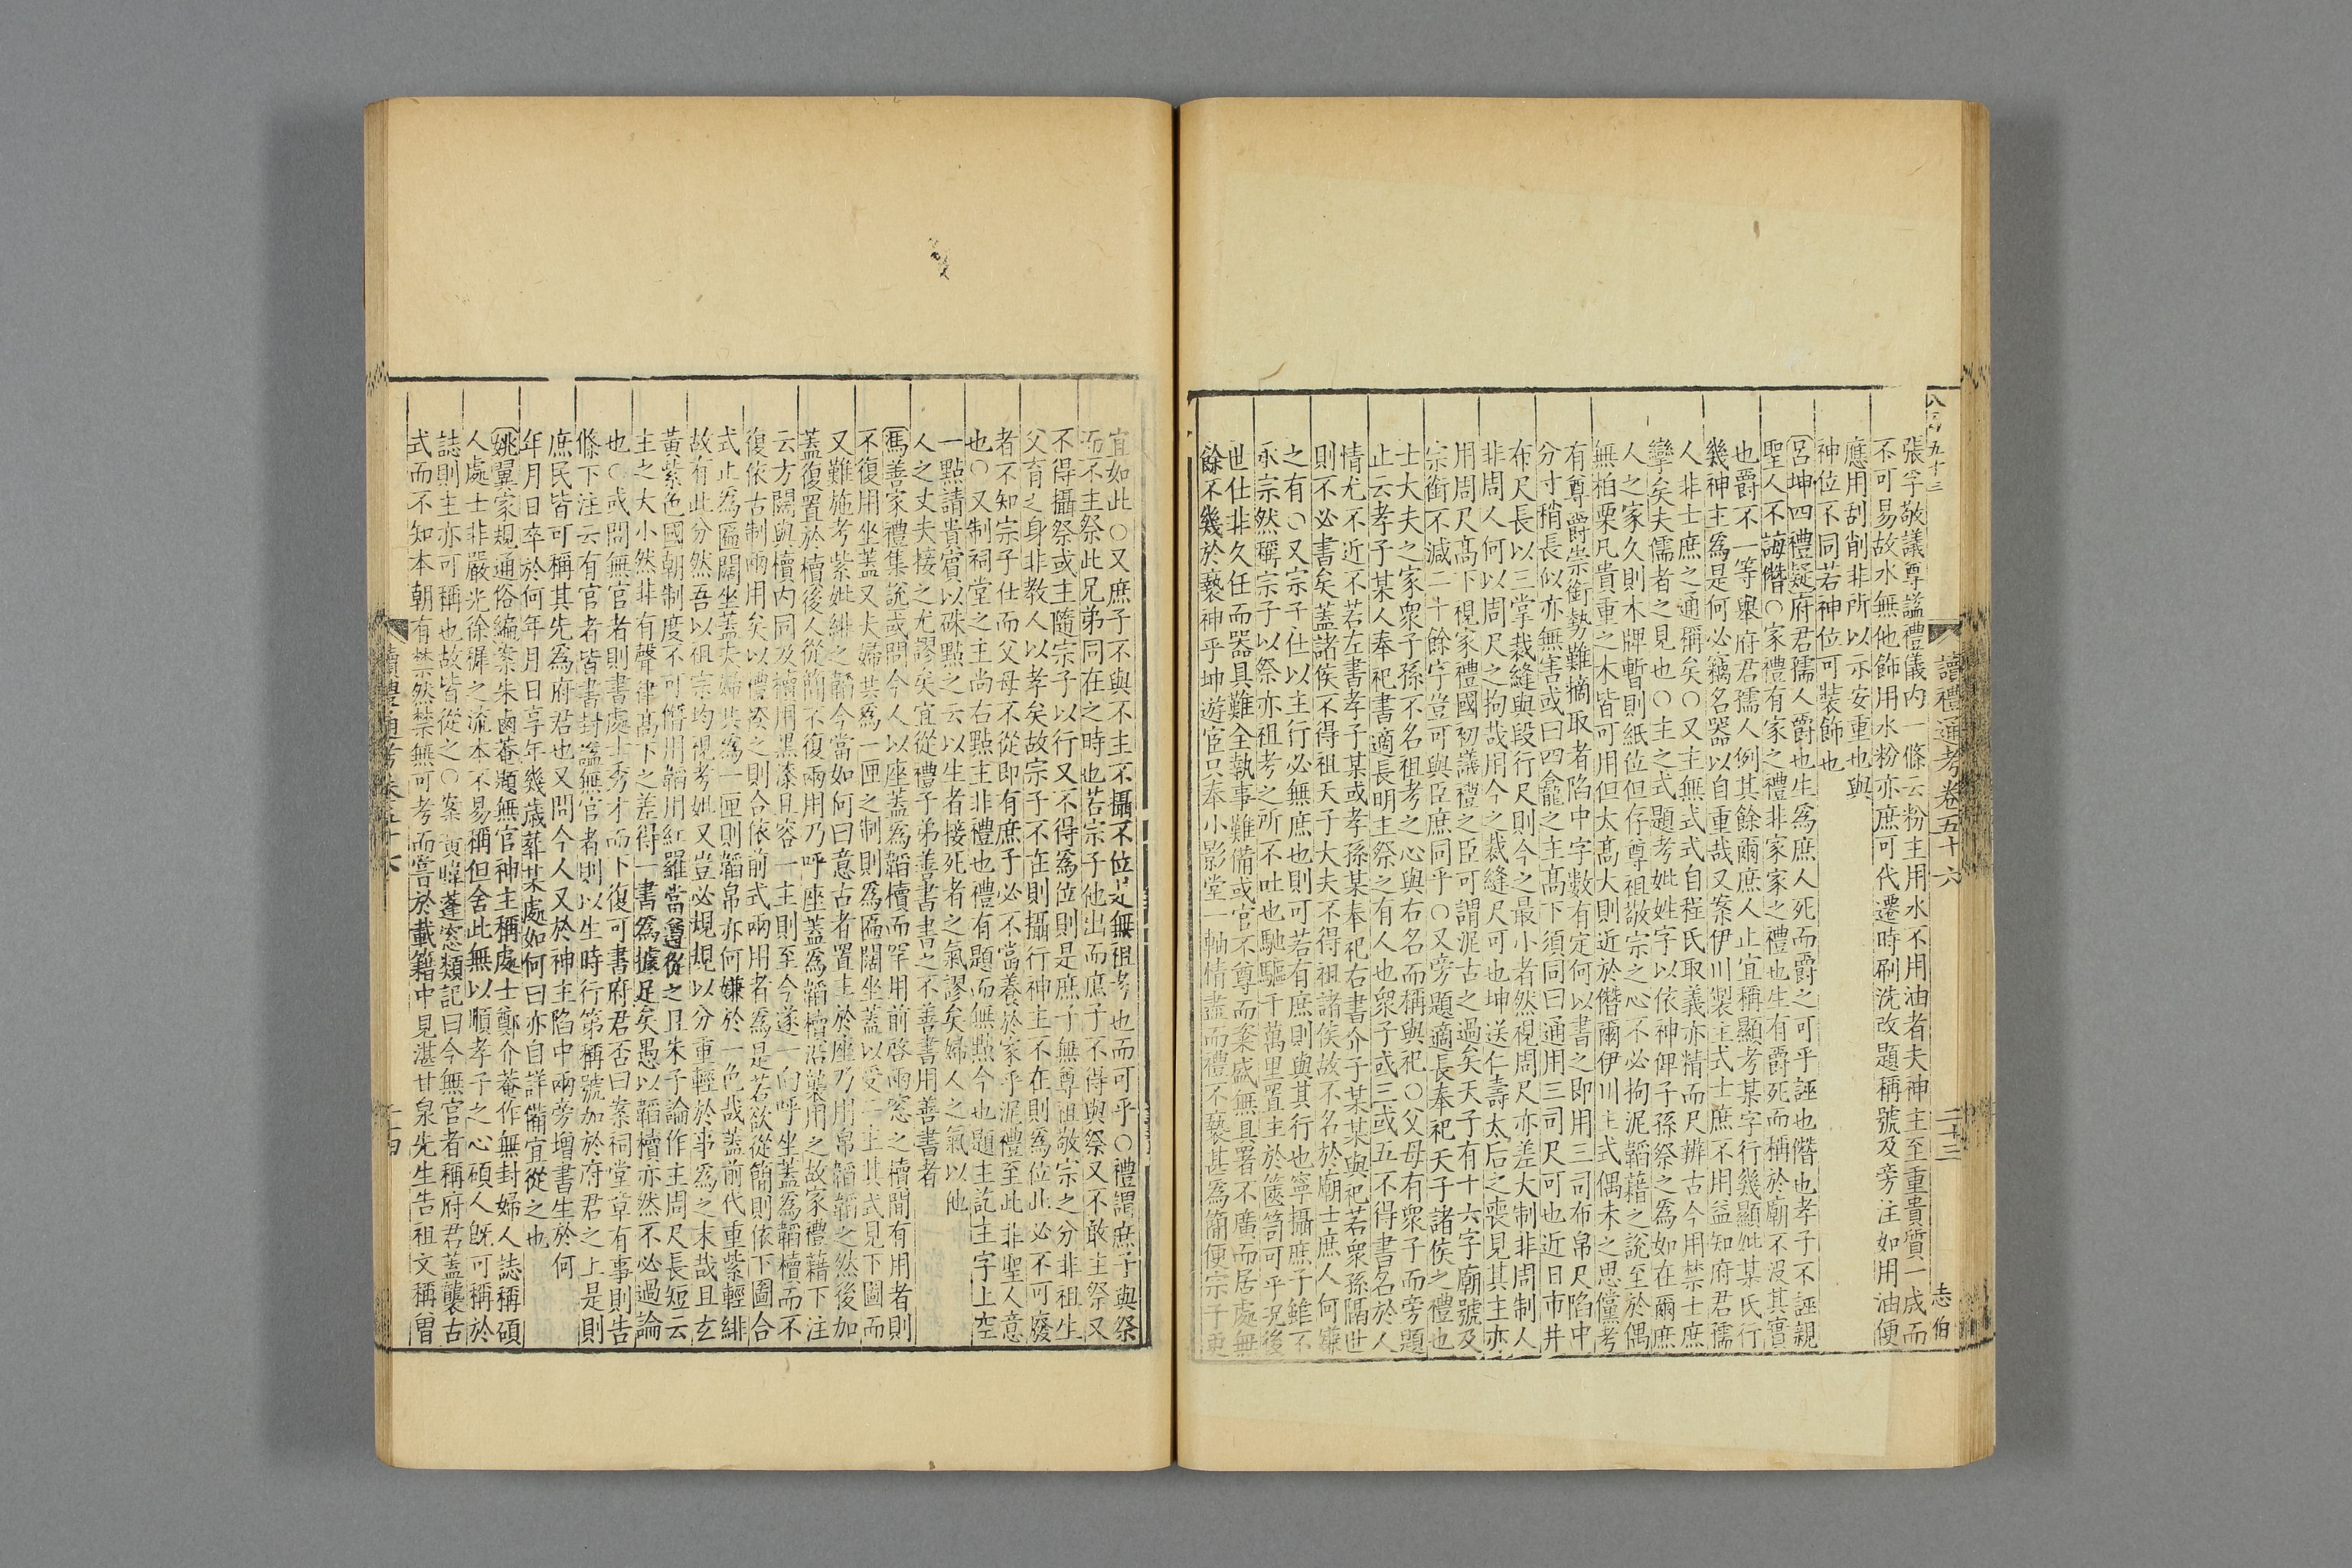 讀禮通考卷五十六
二十三
志伯
張孚敬議尊謚禮儀内一條云粉主用水不用油者夫神主至重貴質一成而
不可易故水無他飾用水粉亦庶可代遷時刷洗改題稱號及旁注如用油便
應用刮削非所以示安重也與
神位不同若神位可裝飾也
呂坤四禮疑府君孺人爵也生爲庶人死而爵之可乎誣也僭也孝子不誣親
聖人不誨僭○家禮有家之禮非家家之禮也生有爵死而稱於廟不沒其實
也爵不一等舉府君孺人例其餘爾庶人止宜稱顯考某字行幾顯妣某氏行
幾神主爲是何必竊名器以自重哉又案伊川製主式士庶不用益知府君孺
人非士庶之通稱矣○又主無式式自程氏取義亦精而尺辨古今用禁士庶
孿矣夫儒者之見也○主之式題考妣姓字以依神俾子孫祭之爲如在爾庶
人之家久則木牌暫則紙位但存尊祖敬宗之心不必拘泥韜藉之說至於偶
無柏栗凡貴重之木皆可用但太高大則近於僭爾伊川主式偶未之思儻考
有尊爵崇銜勢難摘取者陷中字數有定何以書之即用三司布帛尺陷中
分寸稍長似亦無害或曰四龕之主高下須同曰通用三司尺可也近日市井
布尺長以三掌裁縫與段行尺則今之最小者然視周尺亦差大制非周制人
非周人何以周尺之拘哉用今之裁縫尺可也坤送仁壽太后之喪見其主亦
用周尺高下視家禮國初議禮之臣可謂泥古之過矣天子有十六字廟號及
宗銜不減二十餘字豈可與臣庶同乎○又旁題適長奉祀天子諸侯之禮也
士大夫之家衆子孫不名祖考之心與右名而稱與祀○父母有衆子而旁題
止云孝子某人奉祀書適長明主祭之有人也衆子或三或五不得書名於人
情尤不近不若左書孝子某或孝孫某奉祀右書介子某某與祀若衆孫隔世
則不必書矣蓋諸侯不得祖天子大夫不得祖諸侯故不名於廟士庶人何嫌
之有○又宗子仕以主行必無庶也則可若有庶則與其行也寧攝庶子雖不
承宗然稱宗子以祭亦祖考之所不吐也馳驅千萬里置主於篋笥可乎況後
世仕非久任而器具難全執事難備或官不尊而粢盛無具署不廣而居處無
餘不幾於褻神乎坤遊宦只奉小影堂一軸情盡而禮不褻甚爲簡便宗子更
宜如此○又庶子不與不主不攝不位是無祖考也而可乎○禮謂庶子與祭
而不主祭此兄弟同在之時也若宗子他出而庶子不得與祭又不敢主祭又
不得攝祭或主隨宗子以行又不得爲位則是庶子無尊祖敬宗之分非祖生
父育之身非教人以孝矣故宗子不在則攝行神主不在則爲位此必不可廢
者不知宗子仕而父母不從即有庶子必不當養於家乎泥禮至此非聖人意
也○又制祠堂之主尚右點主非禮也禮有題而無點今也題主訖主字上空
一點請貴賓以硃點之云以生者接死者之氣謬矣婦人之氣以他
人之丈夫接之尤謬矣宜從禮子弟善書書之不善書用善書者
馮善家禮集說或問今人以座蓋爲韜櫝而罕用前啓兩窓之櫝間有用者則
不復用坐蓋又夫婦共爲一匣之制則爲匾闊坐蓋以受二主其式見下圖而
又難施考紫妣緋之韜今當如何曰意古者置主於座乃用帛韜韜之然後加
蓋復置於櫝後人從簡不復兩用乃呼座蓋爲韜櫝沿襲用之故家禮藉下注
云方闊與櫝内同及櫝用黑漆且容一主則至今遂一向呼坐蓋爲韜櫝而不
復依古制兩用矣以禮祭之則合依前式兩用者爲是若欲從簡則依下圖合
式止爲匾闊坐蓋夫婦共爲一匣則韜帛亦何嫌於一色哉蓋前代重紫輕緋
故有此分然吾以祖宗均視考妣又豈必規規以分重輕於事爲之末哉且玄
黃紫色國朝制度不可僭用韜用紅羅當遵從之且朱子論作主周尺長短云
主之大小然非有聲律高下之差得一書爲據足矣愚以韜櫝亦然不必過論
也○或問無官者則書處士秀才而下復可書府君否曰案祠堂章有事則告
條下注云有官者皆書封謚無官者則以生時行第稱號加於府君之上是則
庶民皆可稱其先爲府君也又問今人又於神主陷中兩旁增書生於何
年月日卒於何年月日享年幾歲葬某處如何曰亦自詳備宜從之也
姚翼家規通俗編案朱鹵菴題無官神主稱處士鄭介菴作無封婦人誌稱碩
人處士非嚴光徐穉之流本不易稱但舍此無以順孝子之心碩人旣可稱於
誌則主亦可稱也故皆從之○案黃暐蓬窓類記曰今無官者稱府君蓋襲古
式而不知本朝有禁然禁無可考而嘗於載籍中見湛甘泉先生告祖文稱曾
讀禮通考卷五十六
二十四